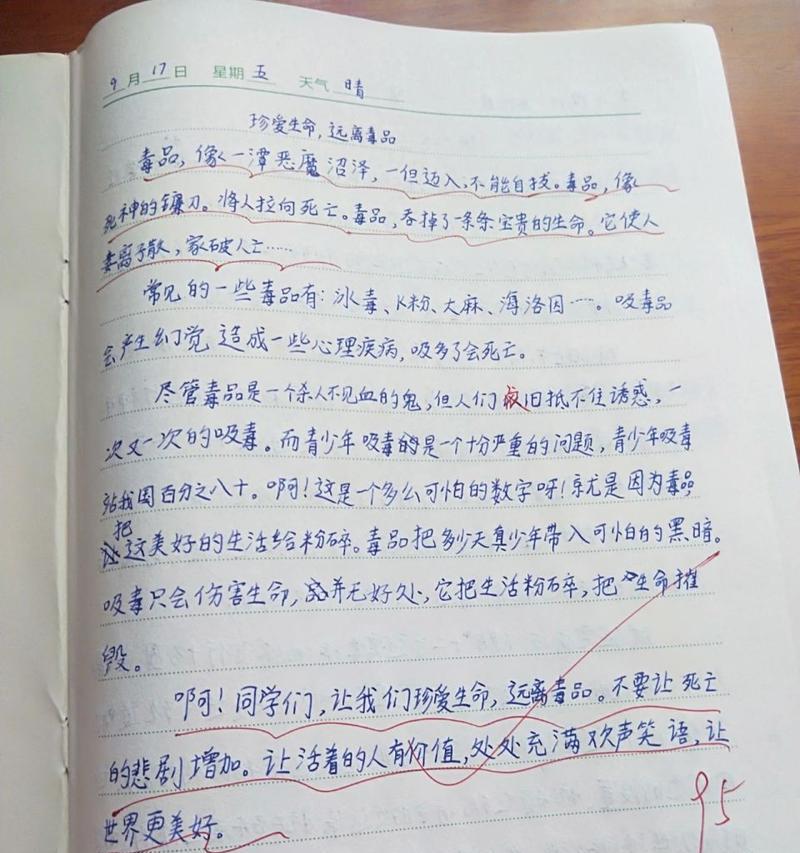 9月17日 星期五 天气晴
珍爱生命，远离毒品
毒品，像一潭恶魔沼泽，一但迈入，不能自拔。毒品，像
死神的镰刀。将人拉向死亡。毒品，吞掉了一条条宝贵的生命。它使人
妻离子散，家破人亡……
常见的一些毒品有：冰毒、K粉、大麻、海洛因……。吸毒品
会产生幻觉 造成一些心理疾病，吸多了会死亡。
尽管毒品是一个杀人不见血的鬼，但人们依旧抵不住诱惑，一
次又一次的吸毒。而青少年吸毒的是一个十分严重的问题，青少年吸毒
占我国百分之八十。啊！这是一个多么可怕的数字呀！就是因为毒品
把
这美好的生活给粉碎。毒品把多少天真少年带入可怕的黑暗。
吸毒只会伤害生命，并无好处，它把生活粉碎，把生命摧
毁。
啊！同学们，让我们珍爱生命，远离毒品。不要让死亡
的悲剧增加。让活着的人有价值，处处充满欢声笑语，让
世界更美好。
95